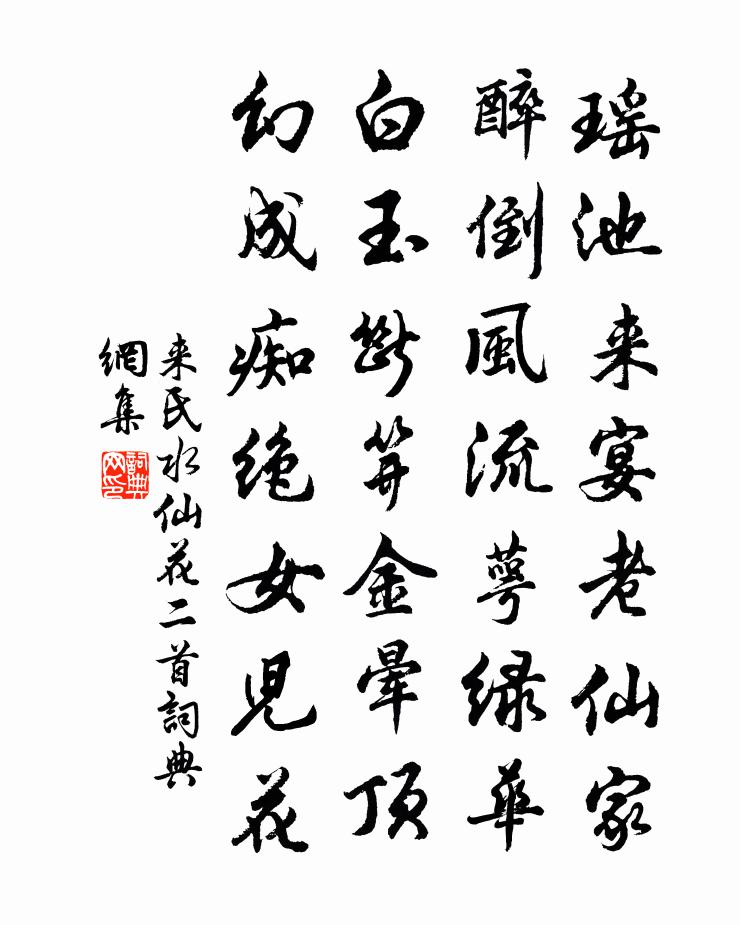 瑶池来宴老仙家
醉倒風流萼绿華
白玉斷笄金暈頂
幻成痴绝女児花
来氏水仙花二首詞典
網集
詞典
网印